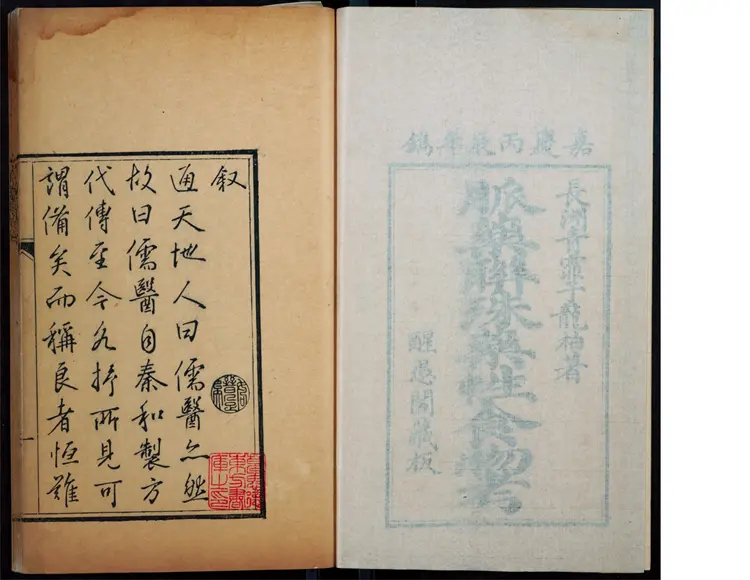 嘉慶丙辰年鐫
長洲青霏子龍柏著
脈藥聯珠藥性食物考
醒愚閣藏板
叙
通天地人曰儒醫亦然
故曰儒醫自秦和製方
代傳至今各抒所見可
謂備矣而稱良者恒難